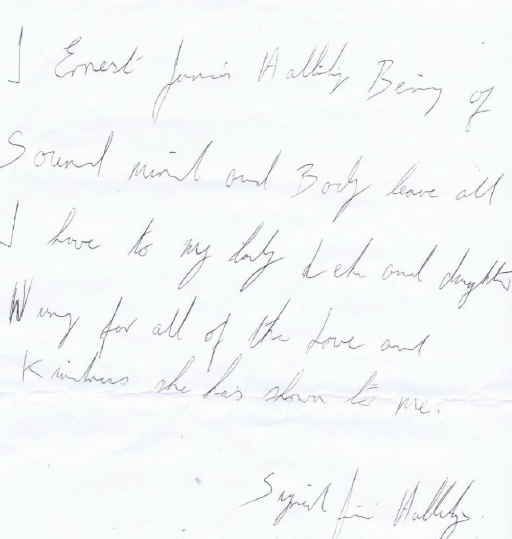 I Ernest James Being of
Sound mind and Body leave all
I have to my lady Lek and daughter
for all of the Love and
Kindness she has shown to me.
Signed Jim